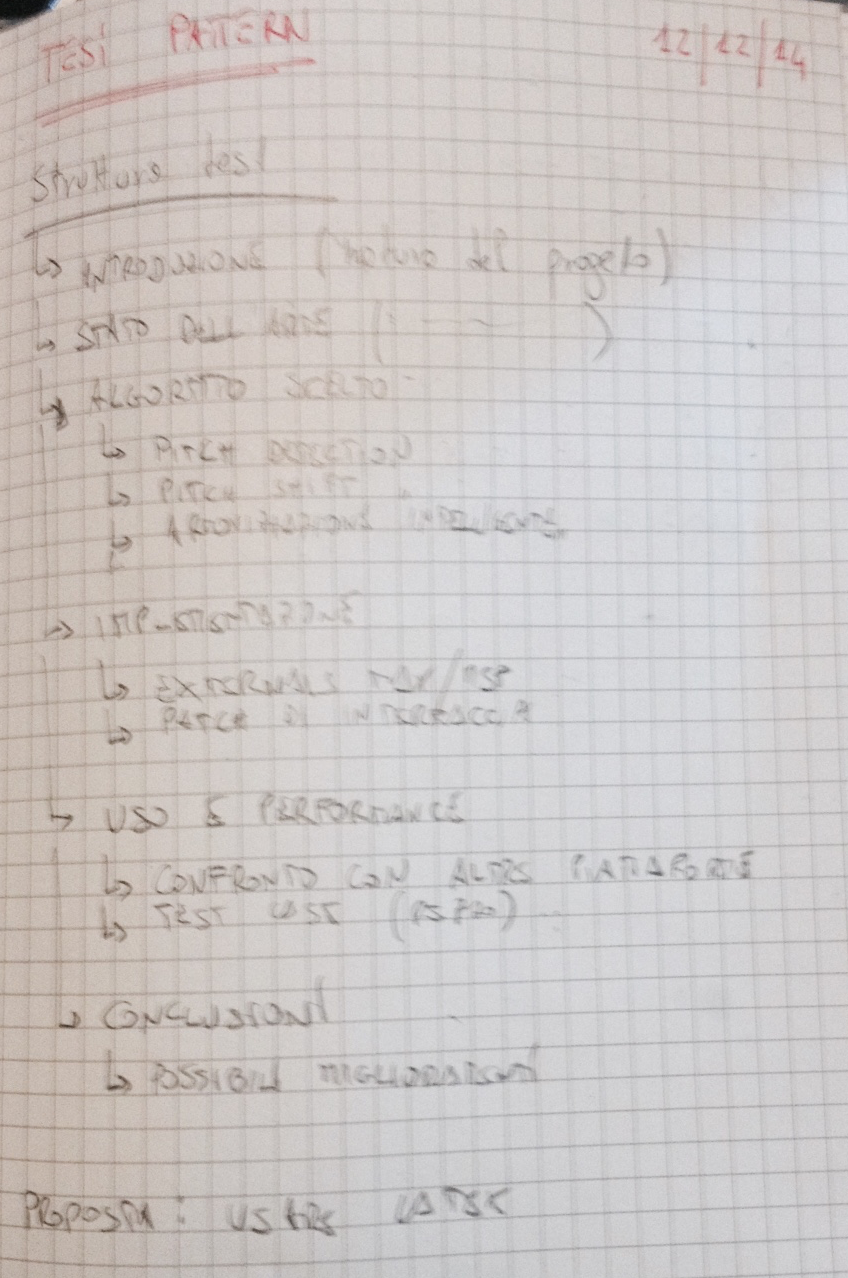 TESI PATTERN
12/12/14
Struttura tesi
↳ INTRODUZIONE ( del progetto)
↳ STATO DELL ARTE ( )
↳ ALGORITMO SCELTO
↳ PITCH DETECTION
↳ PITCH SHIFT
↳ ARMONIZZAZIONE
→ IMPLEMENTAZIONE
↳ EXTERNALS MAX/MSP
↳ PATCH DI
↳ USO E PERFORMANCE
↳ CONFRONTO CON ALTRE PIATTAFORME
↳ TEST CASE ( )
↳ CONCLUSIONI
↳ POSSIBILI MIGLIORAMENTI
PROPOSTA: USARE LATEX